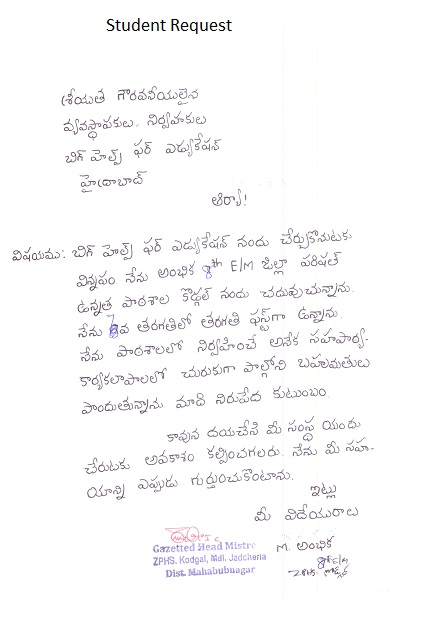 Student Request
శ్రీయుత గౌరవనీయులైన
వ్యవస్థాపకులు, నిర్వాహకులు
బిగ్ హెల్ప్ ఫర్ ఎడ్యుకేషన్
హైద్రాబాద్
ఆర్యా!
విషయము: బిగ్ హెల్ప్ ఫర్ ఎడ్యుకేషన్ నందు చేర్చుకొనుటకు
విన్నపం నేను అంభిక 8th E/M జిల్లా పరిషత్
ఉన్నత పాఠశాల కొడ్గల్ నందు చదువుచున్నాను.
నేను 7వ తరగతిలో తరగతి ఫస్ట్‌గా ఉన్నాను.
నేను పాఠశాలలో నిర్వహించే అనేక సహపాఠ్య-
కార్యకలాపాలలో చురుకుగా పాల్గొని బహుమతులు
పొందుతున్నాను మాది నిరుపేద కుటుంబం.
కావున దయచేసి మీ సంస్థ యందు
చేరుటకు అవకాశం కల్పించగలరు. నేను మీ సహా-
యాన్ని ఎప్పుడు గుర్తుంచుకొంటాను.
ఇట్లు
మీ విదేయురాలు
M. అంభిక
8th E/M
ZPHS. కొడ్గల్
Gazetted Head Mistre
ZPHS, Kodgal, Mdl, Jadcherla
Dist. Mahabubnagar